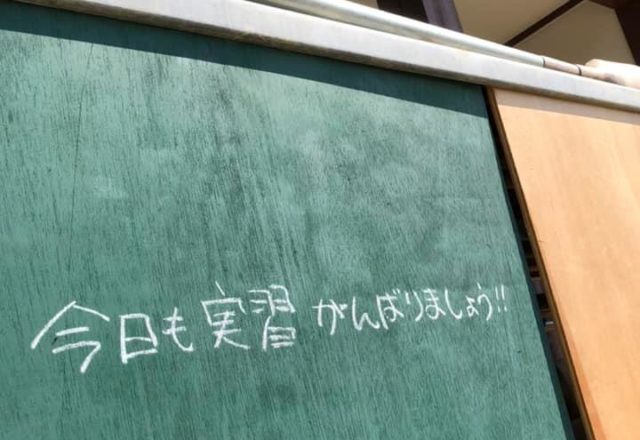 今日も実習がんばりましょう!!